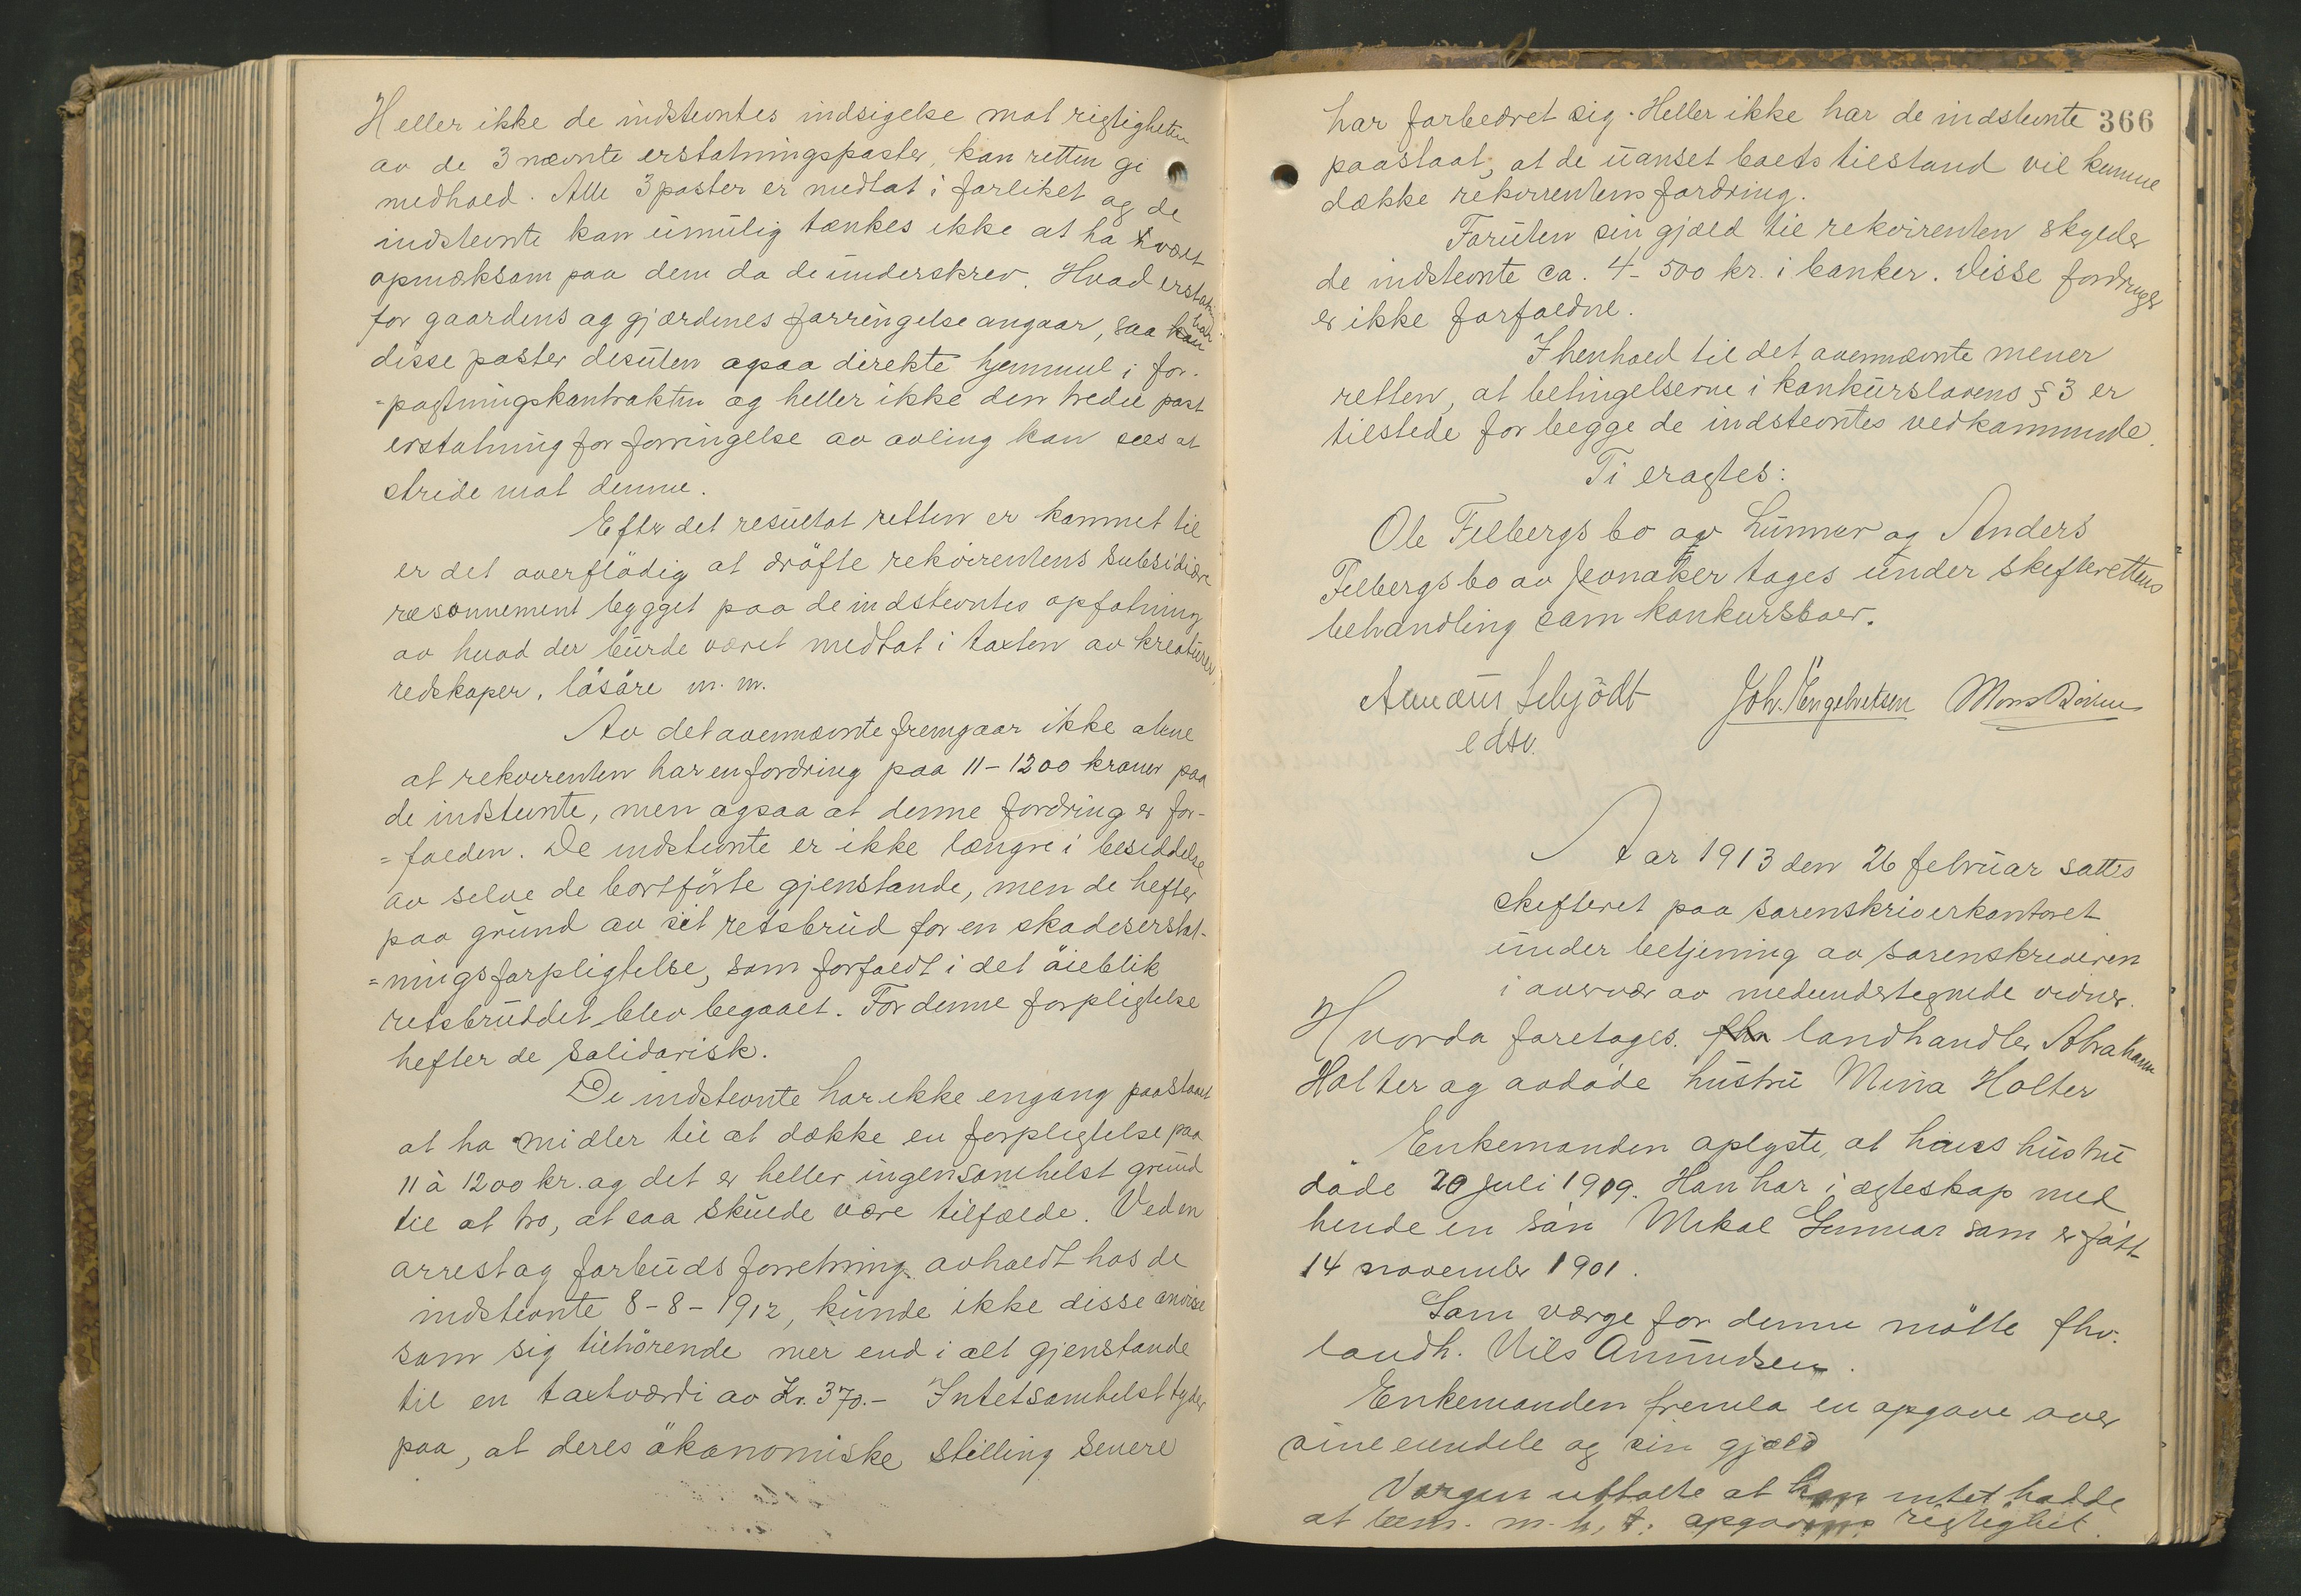 Heller ikke de indstevntes indsigelse mot rigtigheten
av de 3 nævnte erstatningsposter, kan retten gi
medhold. Alle 3 poster er medtat i forliket og de
indstevnte kan umulig tænkes ikke at ha været
opmerksom paa dem da de underskrev. Hvad erstatn.
for gaardens og gjærdenes forringelse angaar, saa har
disse poster desuten ogsaa direkte hjemmel i for-
=pagtningskontrakten og heller ikke den tredie post
erstatning for forringelse av avling kan sees at
stride mot denne.
Efter det resultat retten er kommet til
er det overflödig at dröfte rekvirentens subsidiære
ræsonnement bygget paa de indstevntes opfatning
av hvad der burde været medtat i taxten av kreaturer,
redskaper, lösöre m. m.
Av det ovennævnte fremgaar ikke alene
at rekvirenten har en fordring paa 11-1200 kroner paa
de indstevnte, men ogsaa at denne fordring er for-
=falden. De indstevnte er ikke længre i besiddelse
av selve de bortförte gjenstande, men de hefter
paa grund av sit retsbrud for en skadeserstat-
=ningsforpligtelse, som forfaldt i det öieblik
retsbruddet blev begaaet. For denne forpligtelse
hefter de solidarisk.
De indstevnte har ikke engang paastaaet
at ha midler til at dække en forpligtelse paa
11 à 1200 kr. og det er heller ingensomhelst grund
til at tro, at saa skulde være tilfælde. Ved en
arrest og forbudsforretning avholdt hos de
indstevnte 8-8-1912, kunde ikke disse anvise
som sig tilhörende mer end i alt gjenstande
til en taxtværdi av Kr. 370.- Intetsomhelst tyder
paa, at deres ökonomiske stilling senere
366
har forbedret sig. Heller ikke har de indstevnte
paastaat, at de uanset boets tilstand vil kunne
dække rekvirentens fordring.
Foruten sin gjæld til rekvirenten skylder
de indstevnte ca. 4-500 kr. i banker. Disse fordringer
er ikke forfaldne.
I henhold til det ovennævnte mener
retten, at betingelserne i konkurslovens § 3 er
tilstede for begge de indstevntes vedkommende.
Ti eragtes:
Ole Filbergs bo av Lunner og Anders
Filbergs bo av Jevnaker tages under skifterettens
behandling som konkursboer.
Amœus Schjödt Joh. Engebretsen Mons
edsv.
Aar 1913 den 26 februar sattes
skifteret paa sorenskriverkontoret
under betjening av sorenskriveren
i overvær av medundertegnede vidner.
Hvorda foretages. fhv landhandler Abraham
Holter og avdöde hustru Mina Holter
Enkemanden oplyste, at hans hustru
döde 20 juli 1909. Han har i ægteskap med
hende en sön Mikal Gunnar som er fött
14 november 1901.
Som værge for denne mötte fhv.
landh. Nils Amundsen.
Enkemanden fremla en opgave over
sine eiendele og sin gjæld
Værgen uttalte at han intet hadde
at bem. m. h. t. opgavens rigtighet.